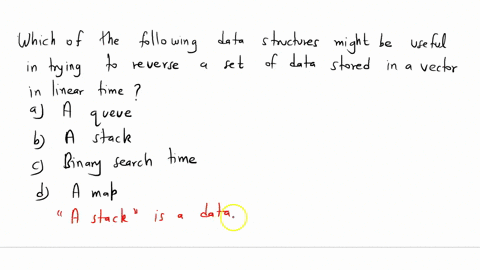 Which of the following data structures might be useful
in trying to reverse a set of data stored in a vector
in linear time ?
a) A queue
b) A stack
c) Binary search time
d) A map
"A stack" is a data.